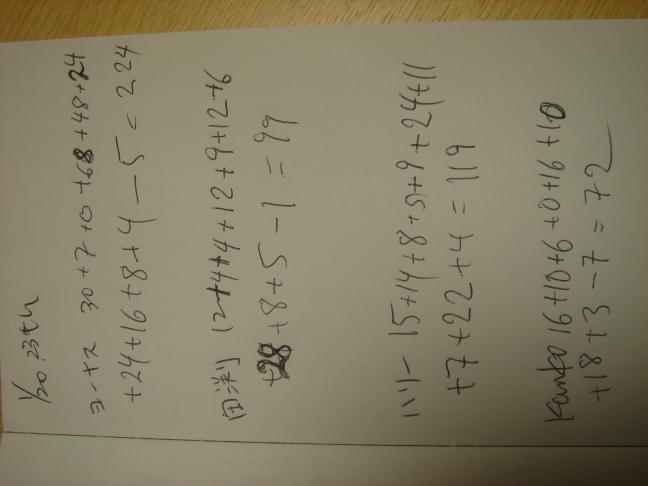 1/20.23th
ヨーヤマ 30+7+0+68+48+24
+24+16+8+4-5=224
12+4+4+12+9+12+6
+28+8+5-1=99
ハリー 15+14+8+5+9+24+11
+7+22+4=119
Kanko 16+10+6+0+16+10
+18+3-7=72